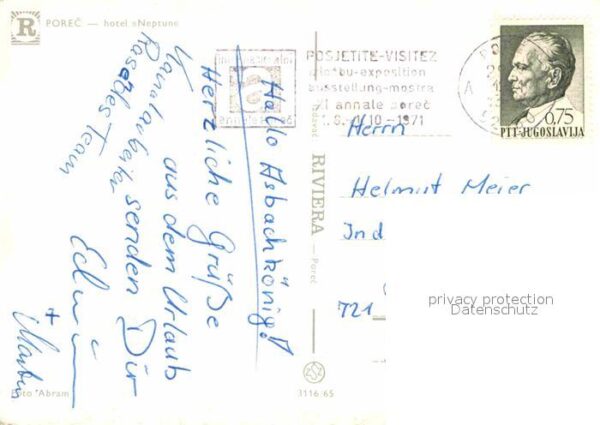 R
POREČ — hotel »Neptun«
Hallo Asbachkönig!
Herzliche Grüße
aus dem Urlaub
senden Dir
Team
Edwin
+ Martin
Foto "Abram
RIVIERA — Poreč
3116/65
POSJETITE-VISITEZ
exposition
ausstellung-mostra
XI annale poreč
10-1971
0,75
PTT-JUGOSLAVIJA
Herrn
Helmut Meier
Ind
721
privacy protection
Datenschutz